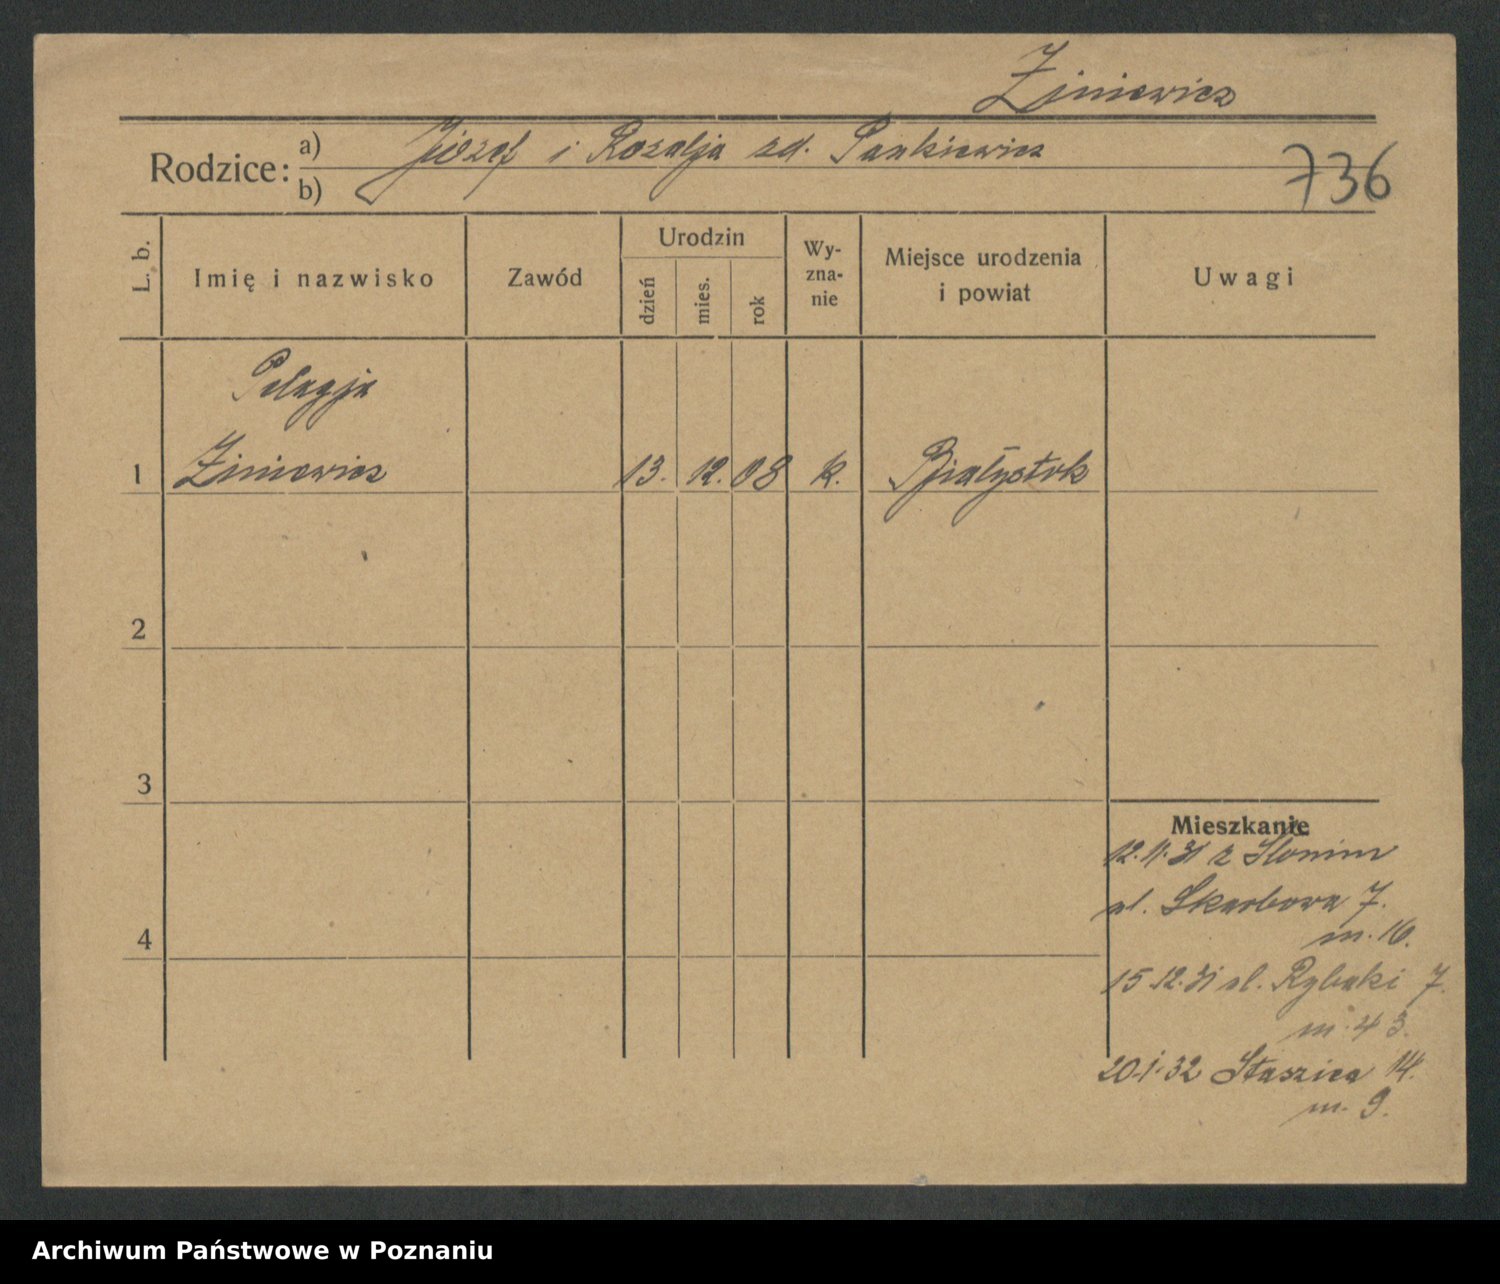 Ziniewicz
Rodzice: a) Józef i Rozalja zd. Pankiewicz
b)
736
L. b.
Imię i nazwisko
Zawód
Urodzin
dzień
mies.
rok
Wy-
zna-
nie
Miejsce urodzenia
i powiat
Uwagi
Pelagja
1 Ziniewicz 13. 12. 08 k. Białystok
2
3
Mieszkanie
12.11.31 z Słonim
ul. Skarbowa 7.
m. 16.
4
15.12.31 ul. Rybaki 7.
m. 43.
20.1.32 Staszica 14.
m. 9.
Archiwum Państwowe w Poznaniu